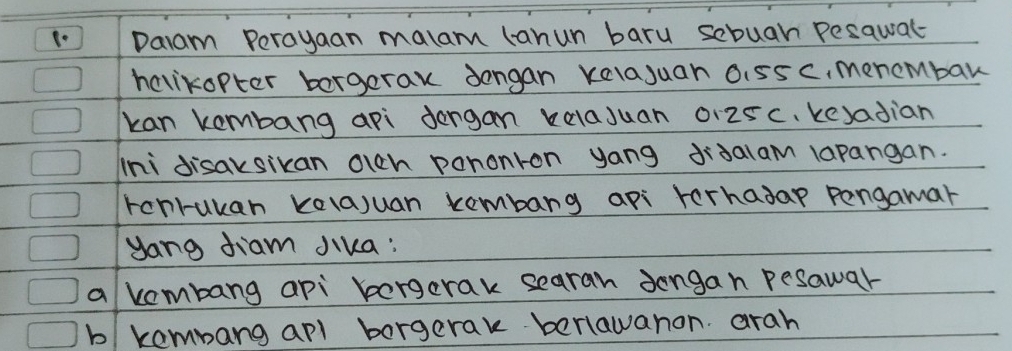 1. Dalam Perayaan malam tahun baru sebuah Pesawat
helikopter bergerak dengan kelajuan 0,55 C, menembak
kan kembang api dengan kelajuan 0,25 C. kejadian
ini disaksikan oleh penonton yang didalam lapangan.
tentukan kelajuan kembang api terhadap Pengamat
yang diam Jika:
a kembang api bergerak searah dengan Pesawat
b kembang api bergerak berlawanan arah